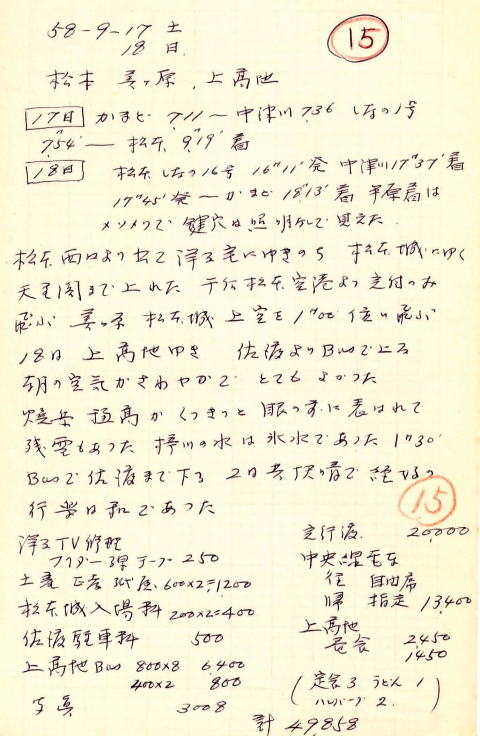 58-9-17 土
18 日
15
松本 美ヶ原、上高地
17日 かまど 7.11〜中津川 7.36 しなの1号
7"54'― 松本 9"19' 着
18日 松本 しなの16号 16"11'発 中津川17"37'着
17"45'発〜かまど 18"13'着 平原着は
で 鍵穴は照明なしで見えた.
松本西口より出て洋子宅にゆきのち 松本城にゆく
天主閣まで上れた 松本空港より
飛ぶ 美ヶ原 松本城 上空を1"00位い飛ぶ
18日 上高地ゆき 佐渡よりBusで上る
朝の空気がさわやかで とてもよかった
焼岳 穂高がくっきりと眼の前に表はれて
残雪もあった 梓川の水は氷水であった 1"30'
Busで佐渡まで下る 2日共快晴で
行楽日和であった
15
洋子TV修理
テープ 250
土産 600×2=1,200
松本城入場料 200×2=400
佐渡駐車料 500
上高地Bus 800×8 6,400
400×2 800
写真 3008
20,000
中央線電車
往 自由席
帰 指定 13,400
上高地
昼食 2450
1450
(定食3 うどん 1
ハンバーグ 2. )
計 49,858